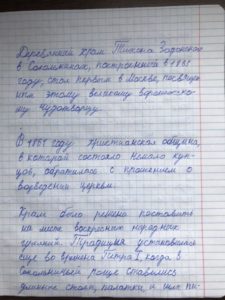 Деревянный храм Тихона Задонского
в Сокольниках, построенный в 1861
году, стал первым в Москве, посвящён-
ным этому великому воронежско-
му чудотворцу.
В 1861 году христианская община,
в которой состояло немало куп-
цов, обратилась с прошением о
возведении церкви.
Храм было решено поставить
на месте воскресных народных
гуляний. Традиция установилась
еще во времена Петра I, когда в
Сокольничьей роще ставились
длинные столы, палатки и шли пи-